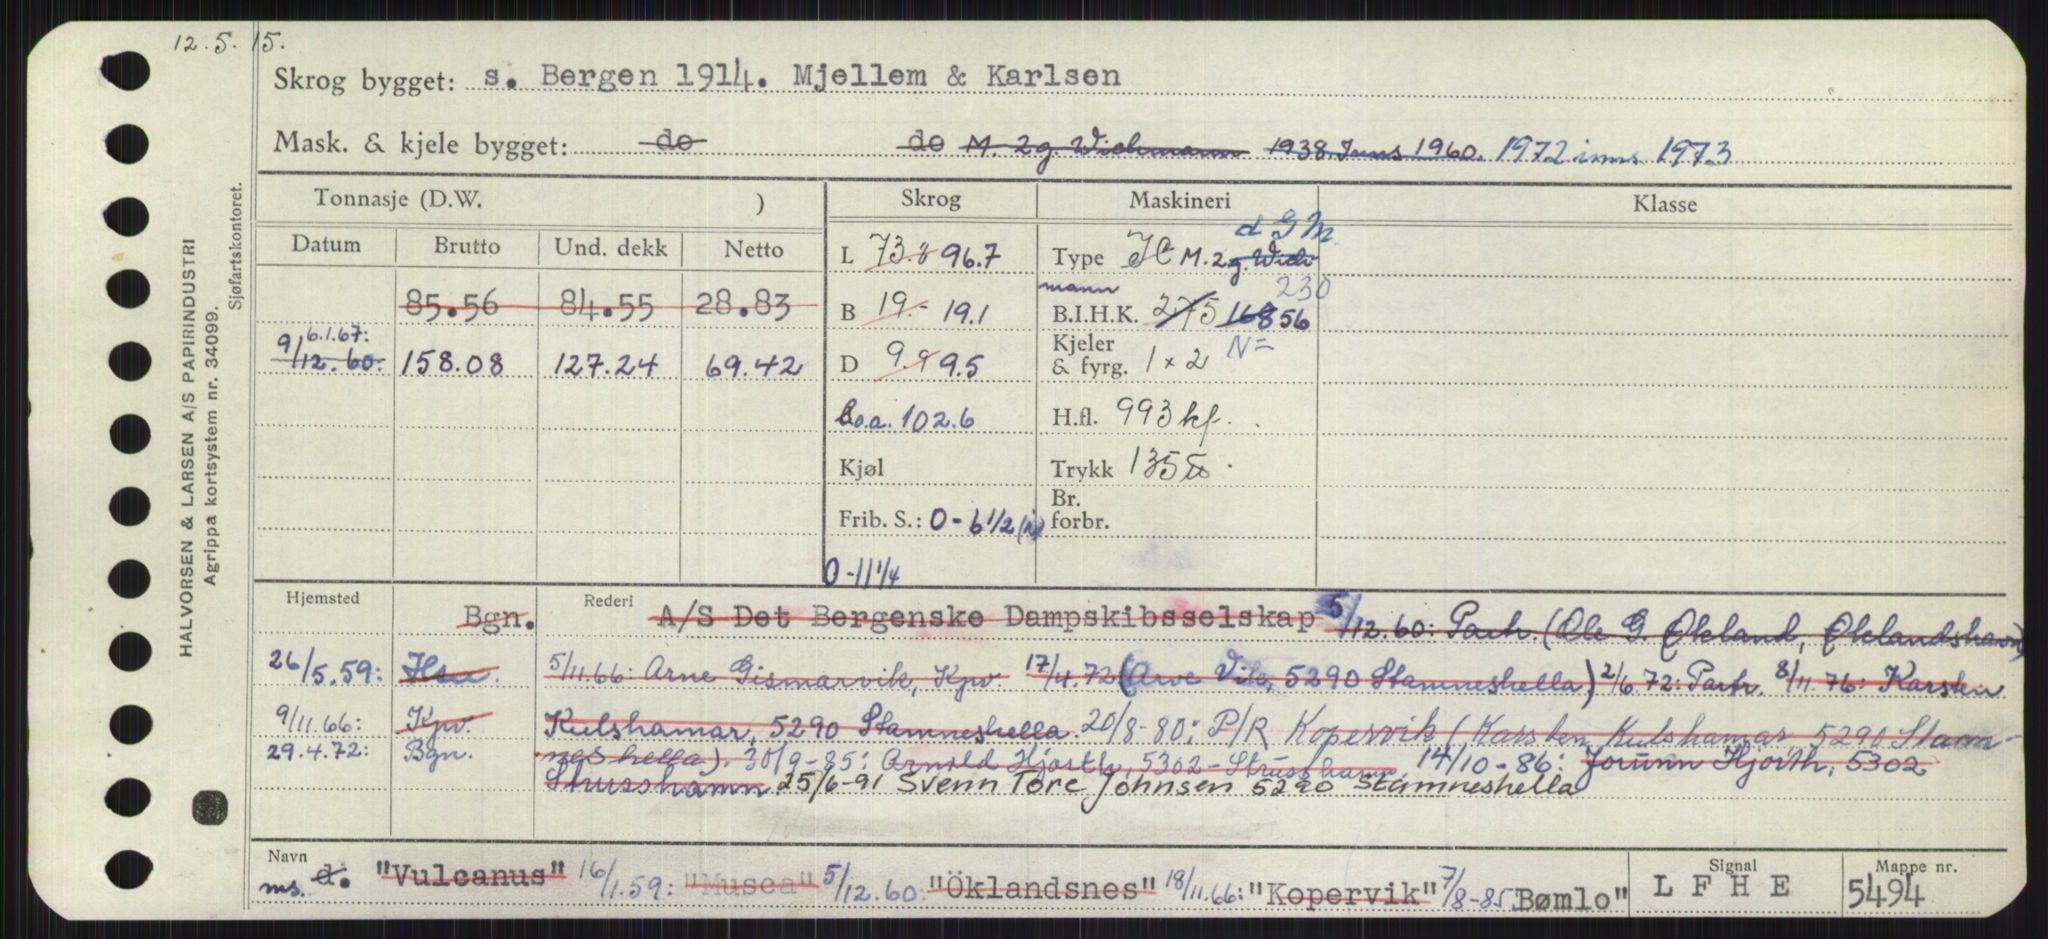 12.5.15.
Skrog bygget: s. Bergen 1914. Mjellem & Karlsen
Mask. & kjele bygget: do do M. 2 g. Wichmann 1938 Inns 1960. 1972 inns 1973
Tonnasje (D.W. )
Skrog
Maskineri
Klasse
Datum Brutto Und. dekk Netto
85.56 84.55 28.83
6.1.67:
9/12.60: 158.08 127.24 69.42
L 73.8 96.7
B 19.- 19.1
D 9.9 9.5
Lo.a. 102.6
Kjøl
Frib. S.: 0-6 1/2
0-11 1/4
d G M
Type M. 2 g. Wich
mann
230
B.I.H.K. 275 168 56
Kjeler N=
& fyrg. 1 x 2
H.fl. 993 kf.
Trykk 135
Br.
forbr.
Hjemsted Bgn. Rederi A/S Det Bergenske Dampskibsselskap 5/12.60: Partr. (Ole G. Økland, Øklandshavn)
26/5.59: Hsu. 5/11.66: Arne Gismarvik, Kpv. 17/4.72 (Arve Vik, 5290 Stamneshella) 2/6.72: Partr. 8/11.76: Karsten
9/11.66: Kpv. Kulshamar, 5290 Stamneshella. 20/8-80: P/R Kopervik (Karsten Kulshamar 5290 Stam-
29.4.72: Bgn. neshella). 30/9-85: Arnold Hjorth, 5302 Strusshamn. 14/10-86: Jorunn Hjorth, 5302
Strusshamn. 25/6-91 Svenn Tore Johnsen 5290 Stamneshella
Navn
ms. d. "Vulcanus" 16/1.59: "Musca" 5/12.60: "Öklandsnes" 18/11.66: "Kopervik" 7/8-85: Bømlo"
Signal
L F H E
Mappe nr.
5494
HALVORSEN & LARSEN A/S PAPIRINDUSTRI
Agrippa kortsystem nr. 34099.
Sjøfartskontoret.